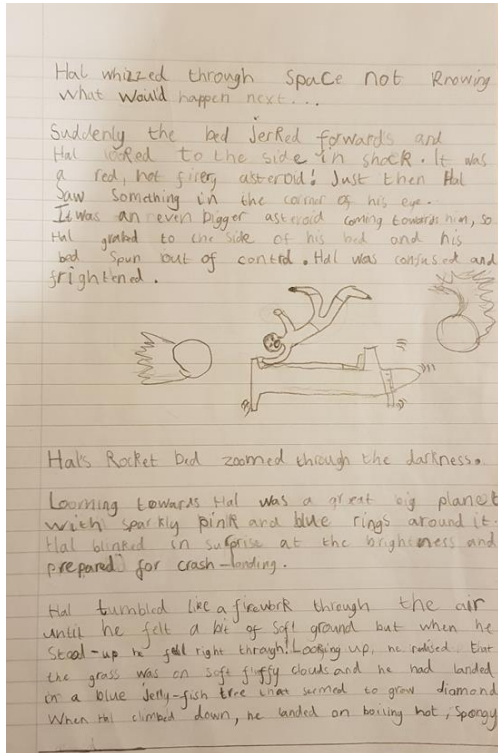 Hal whizzed through space not knowing
what would happen next...
Suddenly the bed jerked forwards and
Hal looked to the side in shock. It was
a red, hot firery asteroid! Just then Hal
saw something in the corner of his eye.
It was an even bigger asteroid coming towards him, so
Hal grabed to the side of his bed and his
bed spun out of control. Hal was confused and
frightened.
Hal's Rocket bed zoomed through the darkness.
Looming towards Hal was a great big planet
with sparkly pink and blue rings around it.
Hal blinked in surprise at the brightness and
prepared for crash-landing.
Hal tumbled like a firework through the air
until he felt a bit of soft ground but when he
stood-up he fell right through! Looking up, he realised that
the grass was on soft fluffy clouds and he had landed
in a blue jelly-fish tree that seemed to grow diamond
When Hal climbed down, he landed on boiling hot, spongy